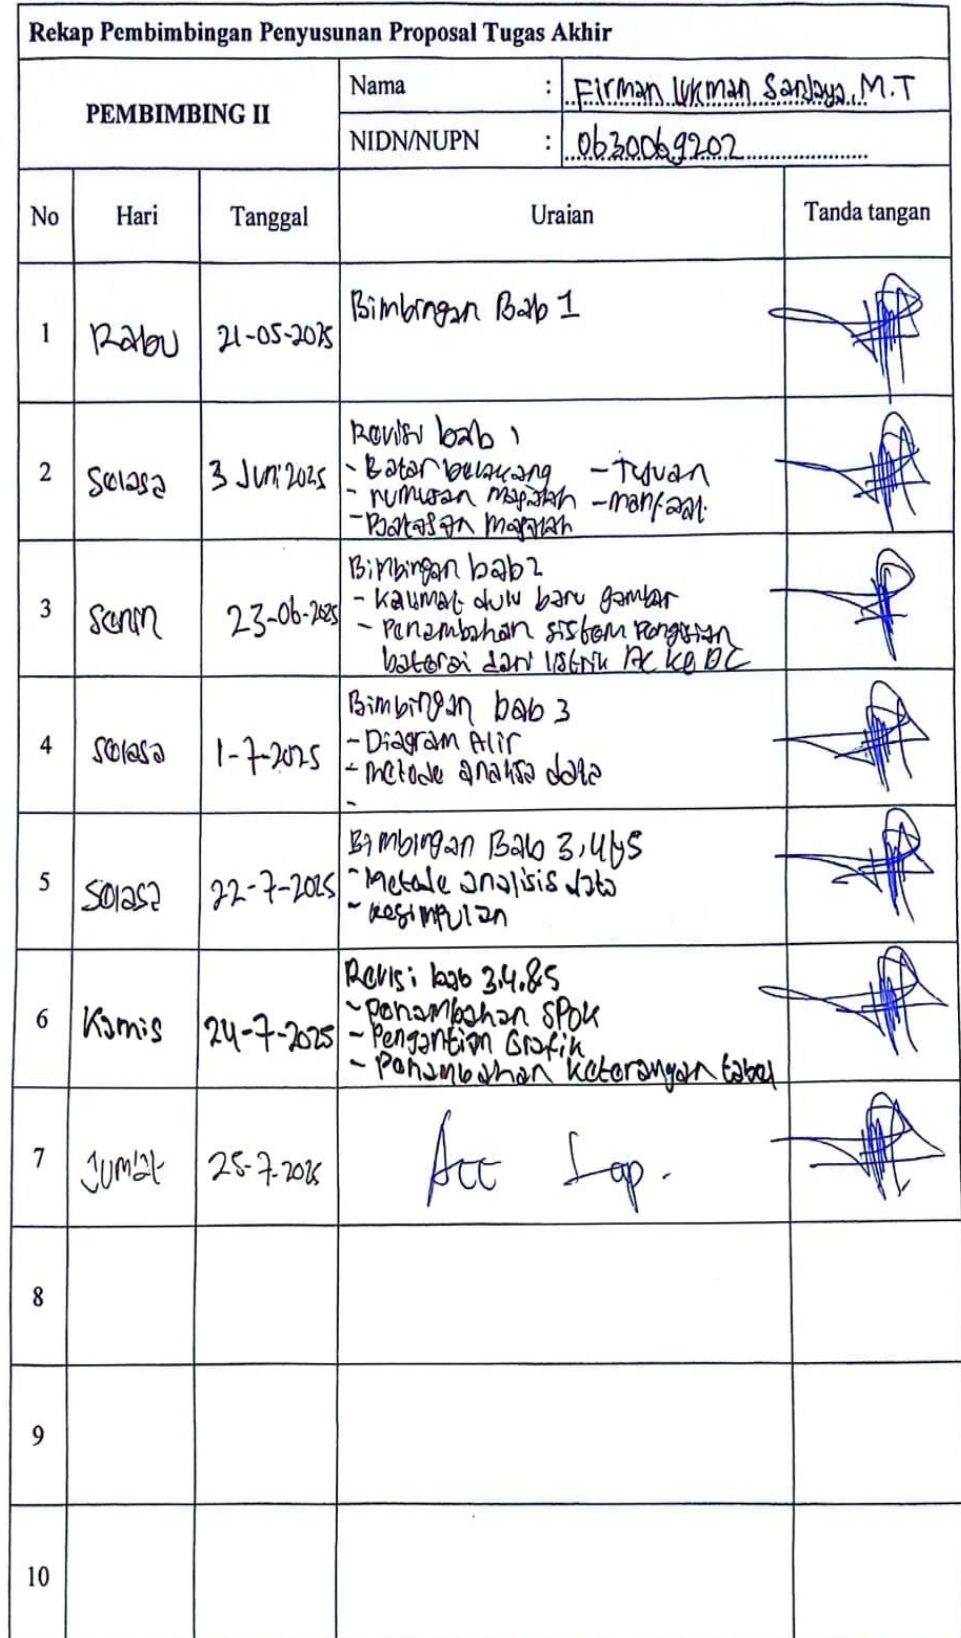 Rekap Pembimbingan Penyusunan Proposal Tugas Akhir
PEMBIMBING II
Nama : Firman Lukman Sanjaya, M.T
NIDN/NUPN : 0630069202
No Hari Tanggal Uraian Tanda tangan
1 Rabu 21-05-2025 Bimbingan Bab 1
2 Selasa 3 Juni 2025 Revisi bab 1
- Latar belakang - Tujuan
- rumusan masalah - manfaat
- Batasan masalah
3 Senin 23-06-2025 Bimbingan bab 2
- Kalimat dulu baru gambar
- Penambahan sistem Pengisian
baterai dari listrik AC ke DC
4 Selasa 1-7-2025 Bimbingan bab 3
- Diagram Alir
- metode analisa data
-
5 Selasa 22-7-2025 Bimbingan Bab 3,4&5
- Metode analisis data
- kesimpulan
6 Kamis 24-7-2025 Revisi bab 3.4.&5
- Penambahan SPOK
- Pengantian Grafik
- Penambahan keterangan tabel
7 Jum'at 25-7-2025 Acc Lap.
8
9
10